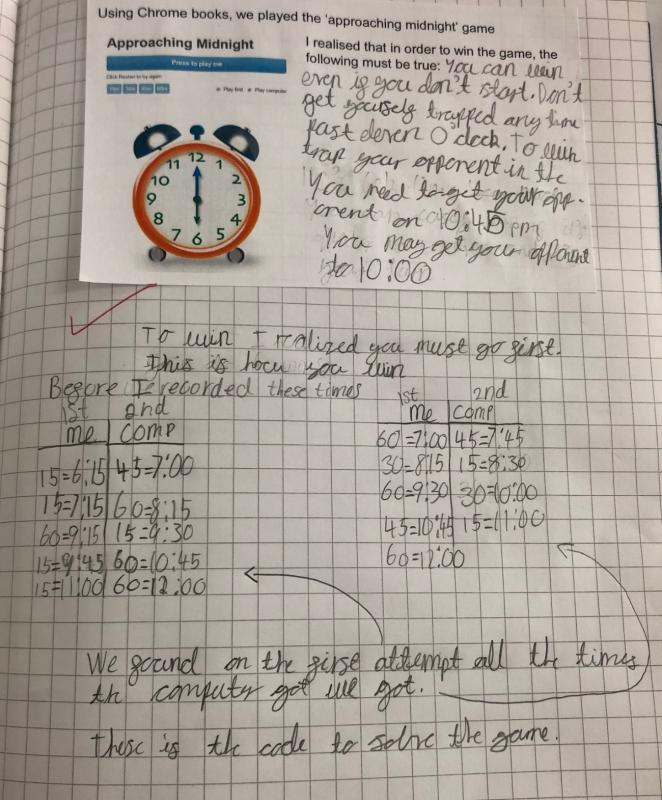 Using Chrome books, we played the 'approaching midnight' game
Approaching Midnight
Press to play me
Click Restart to try again
Play first Play computer
12
1
2
3
4
5
6
7
8
9
10
11
I realised that in order to win the game, the
following must be true: You can win
even if you don't start. Don't
get yourself trapped any time
past eleven O clock. To win
trap your opponent in the
You need to get your opp-
onent on 10:45 pm
You may get your opponent
to 10:00
To win I realized you must go first.
This is how you win
Before I recorded these times
1st 2nd
me comp
15=6:15 45=7:00
15=7:15 60=8:15
60=9:15 15=9:30
15=9:45 60=10:45
15=11:00 60=12:00
1st 2nd
me comp
60=7:00 45=7:45
30=8:15 15=8:30
60=9:30 30=10:00
45=10:45 15=11:00
60=12:00
We found on the first attempt all the times
th computer got we got.
These is the code to solve the game.